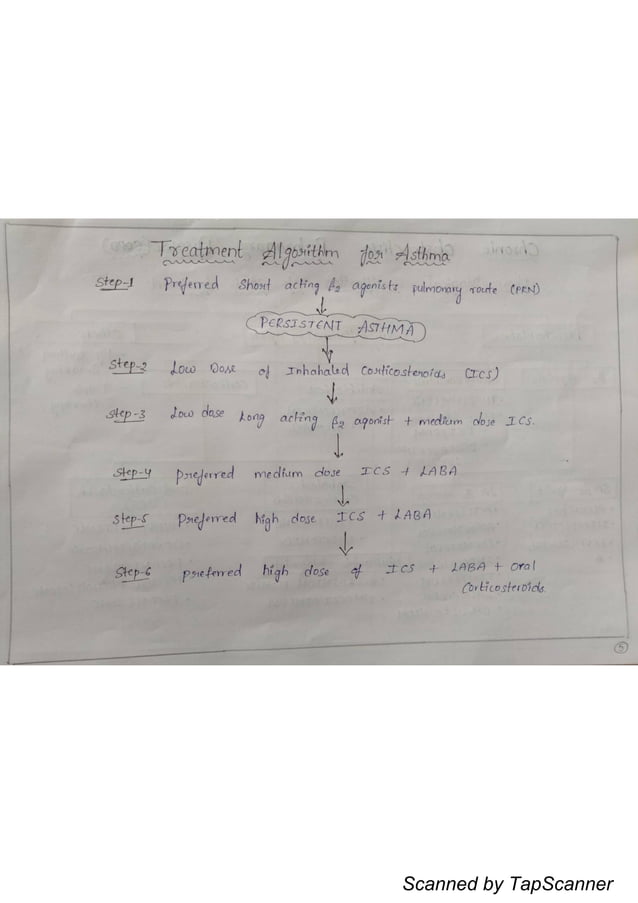 Treatment Algorithm for Asthma
Step-1 Preferred Short acting β2 agonists pulmonary route (PRN)
PERSISTENT ASTHMA
Step-2 Low Dose of Inhahaled Corticosteroids (ICS)
Step-3 Low dose Long acting β2 agonist + medium dose ICS.
Step-4 preferred medium dose ICS + LABA
Step-5 Preferred high dose ICS + LABA
Step-6 preferred high dose of ICS + LABA + oral
Corticosteroids.
5
Scanned by TapScanner